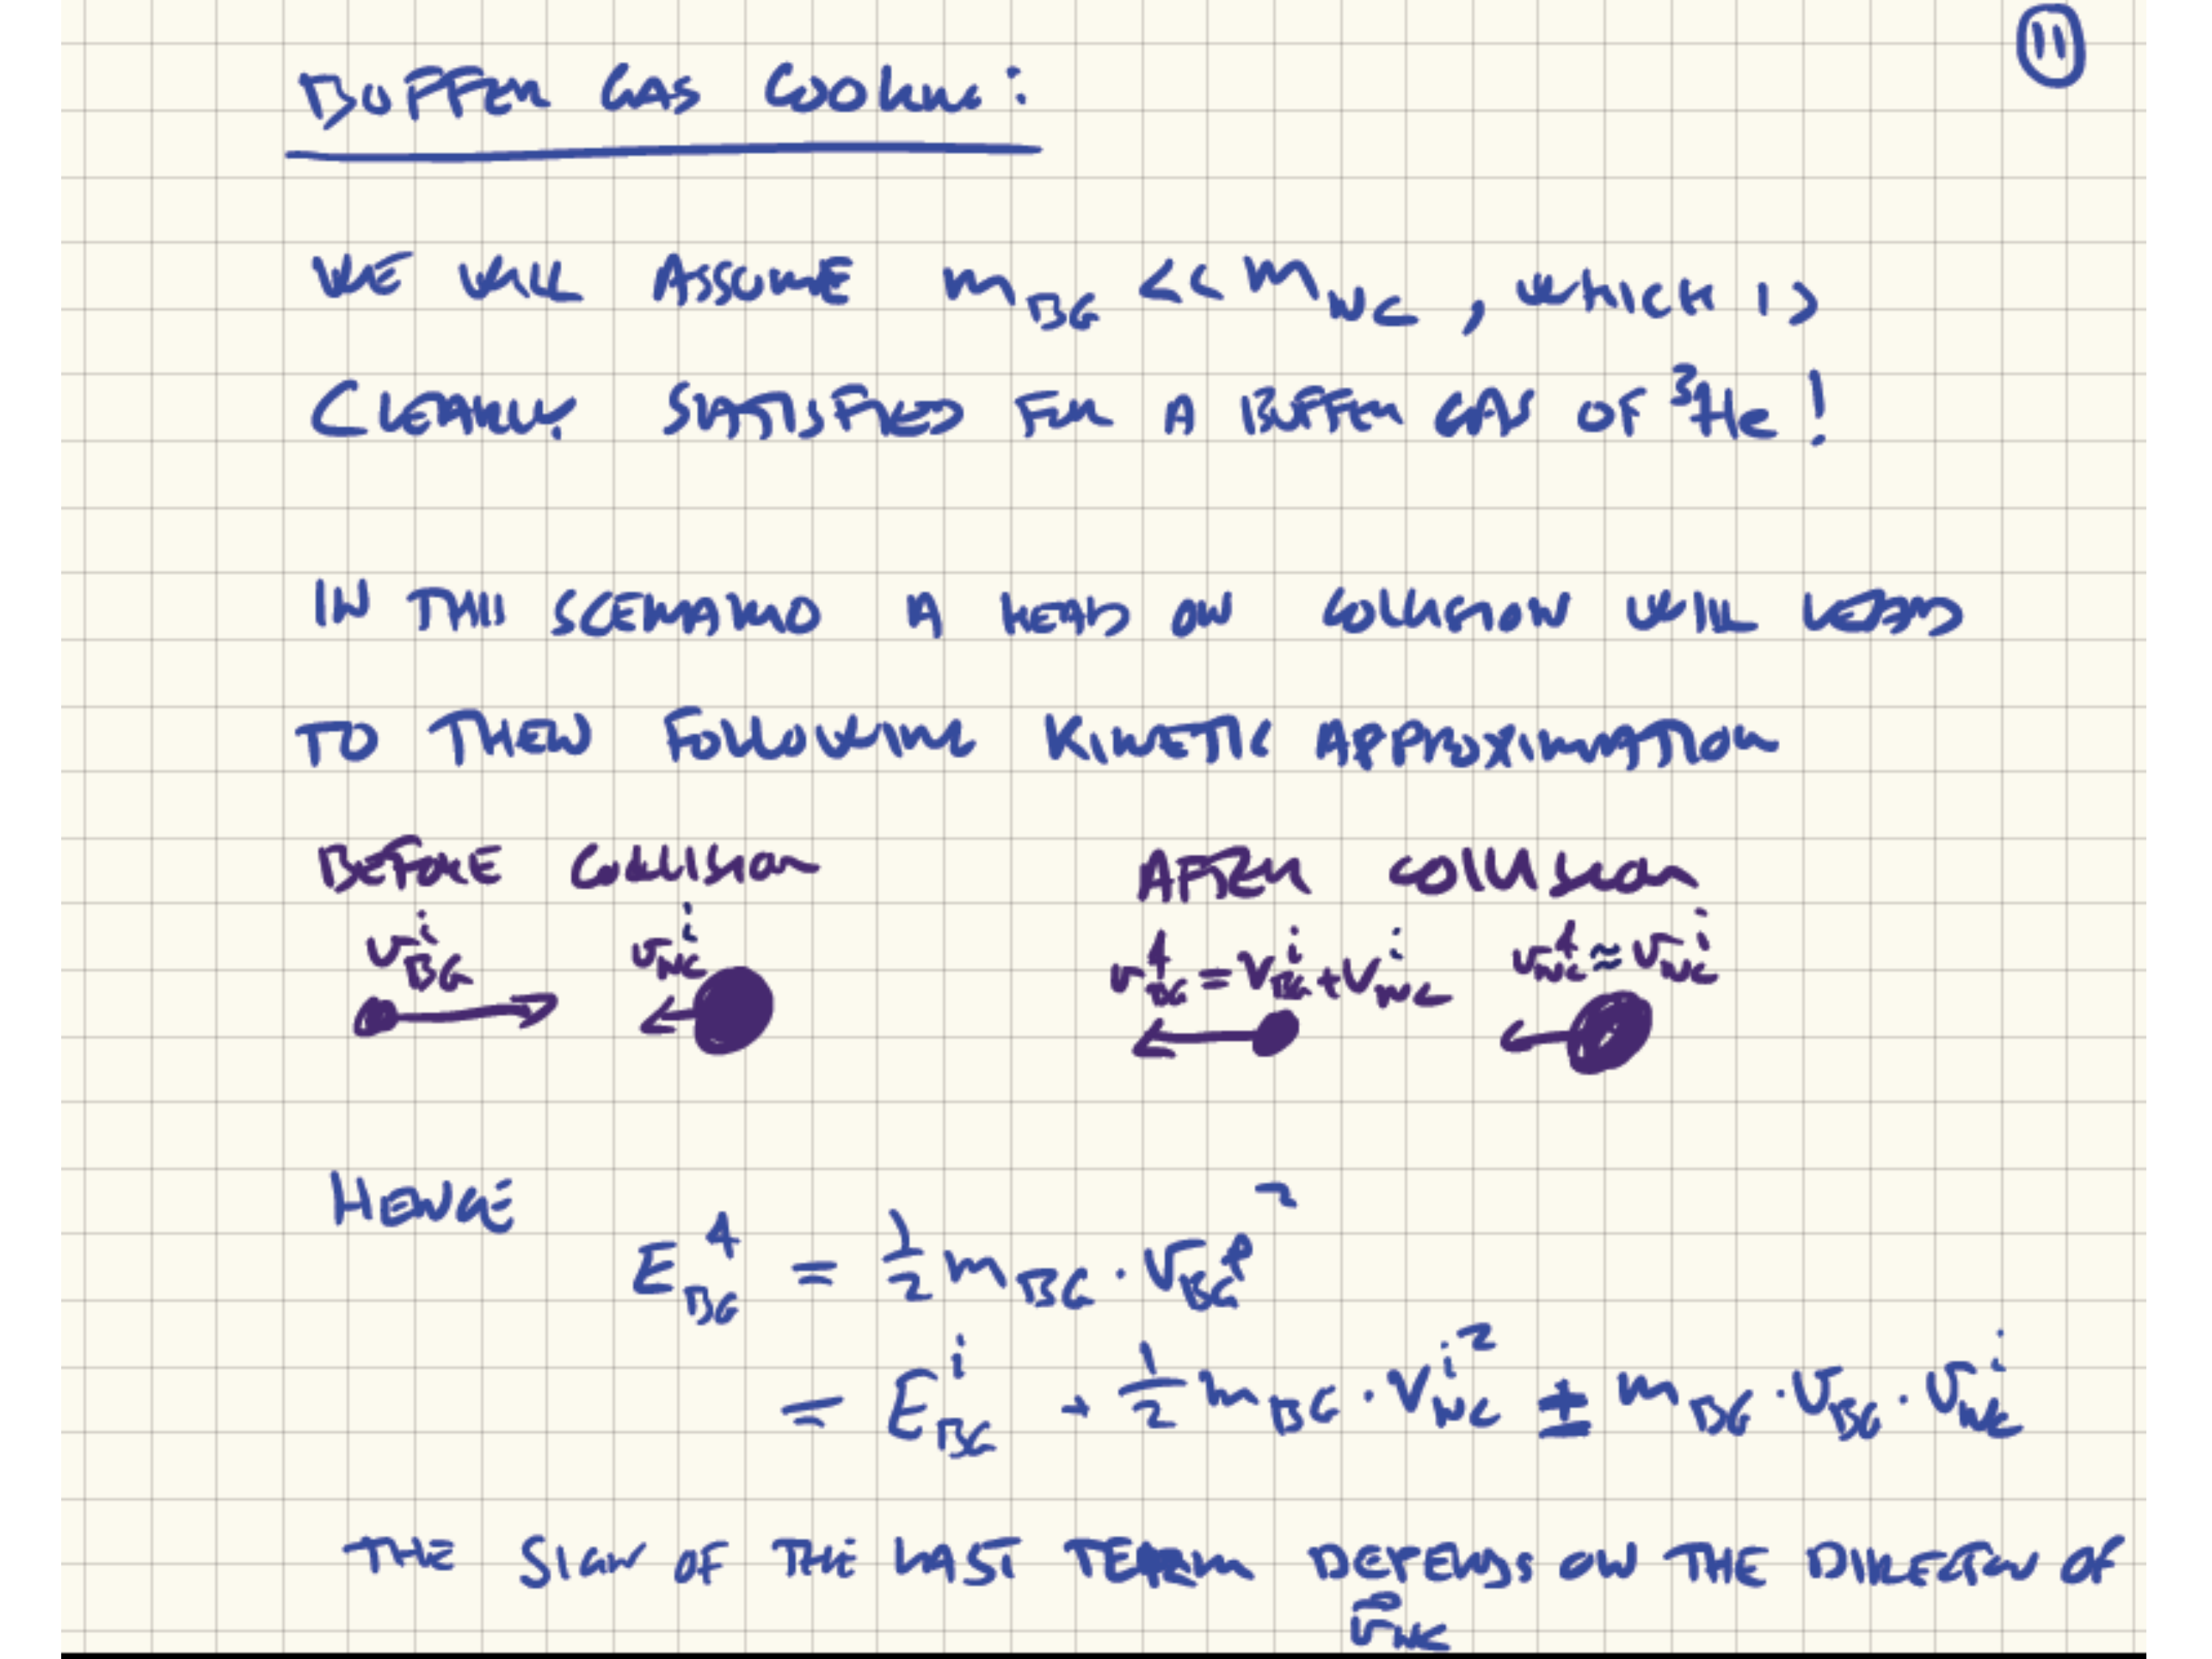 11
BUFFER GAS COOLING:
WE WILL ASSUME m_BG << m_NC, WHICH IS
CLEARLY SATISFIED FOR A BUFFER GAS OF ³He!
IN THIS SCENARIO A HEAD ON COLLISION WILL LEAD
TO THEN FOLLOWING KINETIC APPROXIMATION
BEFORE COLLISION AFTER COLLISION
v_BG^i v_NC^i v_BG^f = v_BG^i + v_NC^i v_NC^f ≈ v_NC^i
HENCE
E_BG^f = 1/2 m_BG · v_BG^f ²
= E_BG^i + 1/2 m_BG · v_NC^i ² ± m_BG · v_BG · v_NC^i
THE SIGN OF THE LAST TERM DEPENDS ON THE DIRECTION OF
v_NC